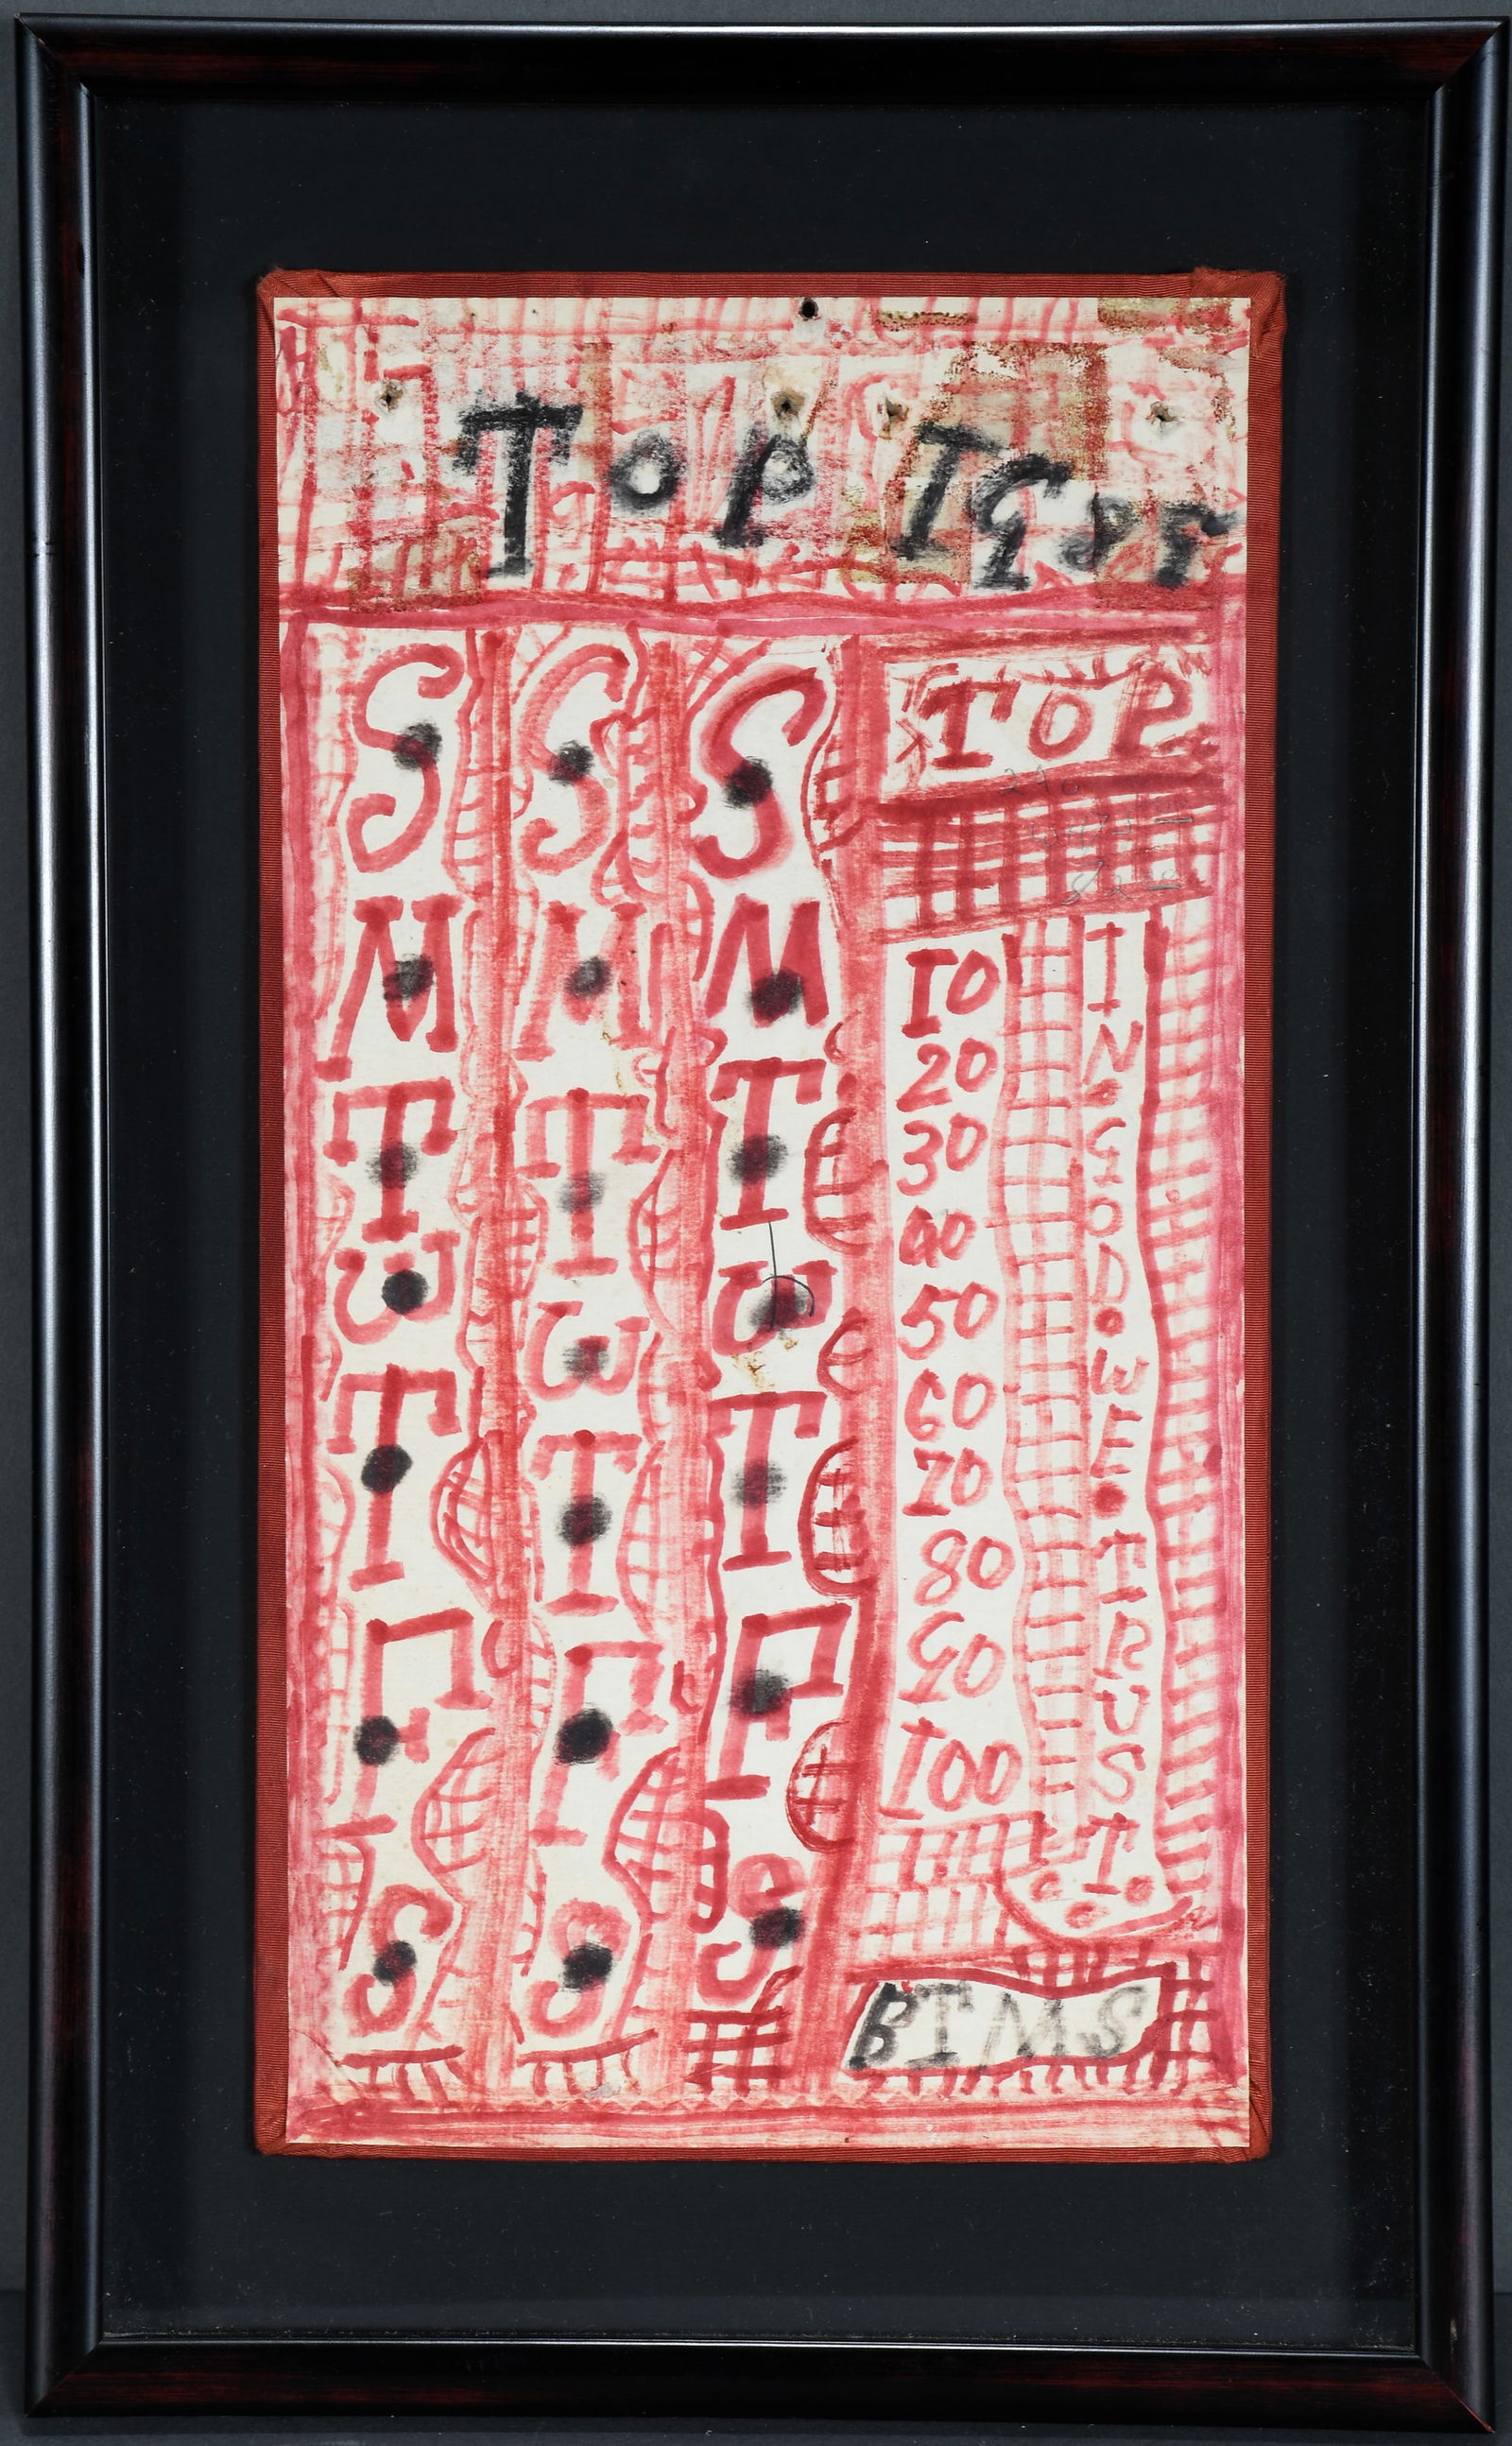 TOP
S S S
M M M
T T T
W W W
T T T
F F F
S S S
TOP
10
20
30
40
50
60
70
80
90
100
IN.GOD.WE.TRUST.
BTMS